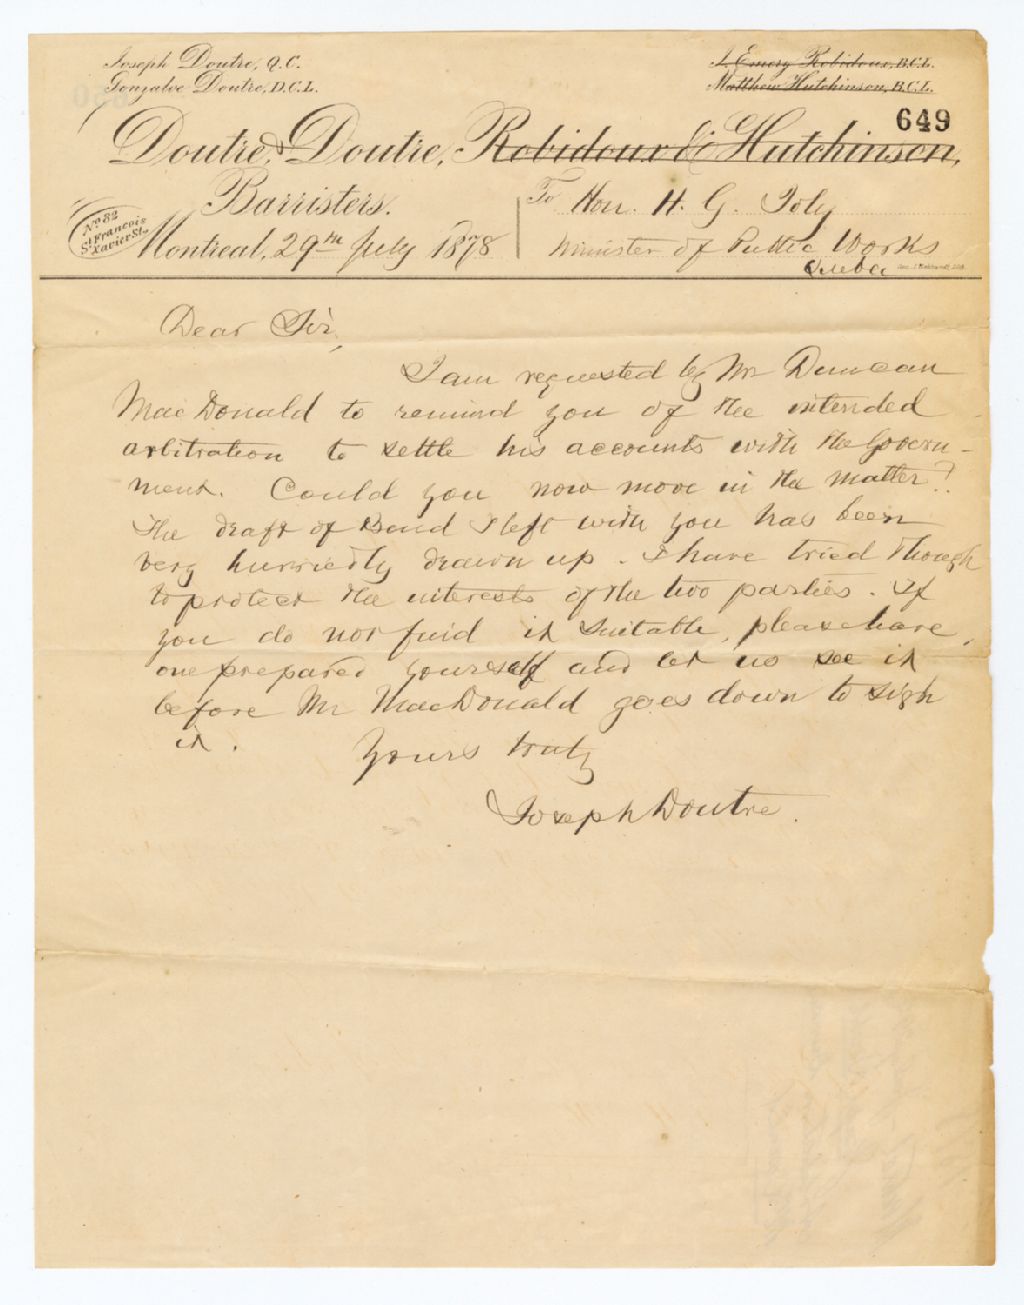 Joseph Doutre, Q.C.
Gonzalve Doutre, D.C.L.
J. Emery Robidoux, B.C.L.
Matthew Hutchinson, B.C.L.
649
Doutre, & Doutre, Robidoux & Hutchinson,
Barristers.
No 82
St Francois
Xavier St.
Montreal, 29th July 1878
To Hon. H. G. Joly
Minister of Public Works
Quebec
Dear Sir,
I am requested by Mr Duncan
MacDonald to remind you of the intended
arbitration to settle his accounts with the Govern-
ment. Could you now move in the matter?
The draft of Bond I left with you has been
very hurriedly drawn up. I have tried though
to protect the interests of the two parties. If
you do not find it suitable, please have
one prepared yourself and let us see it
before Mr MacDonald goes down to sign
it.
Yours truly
Joseph Doutre.